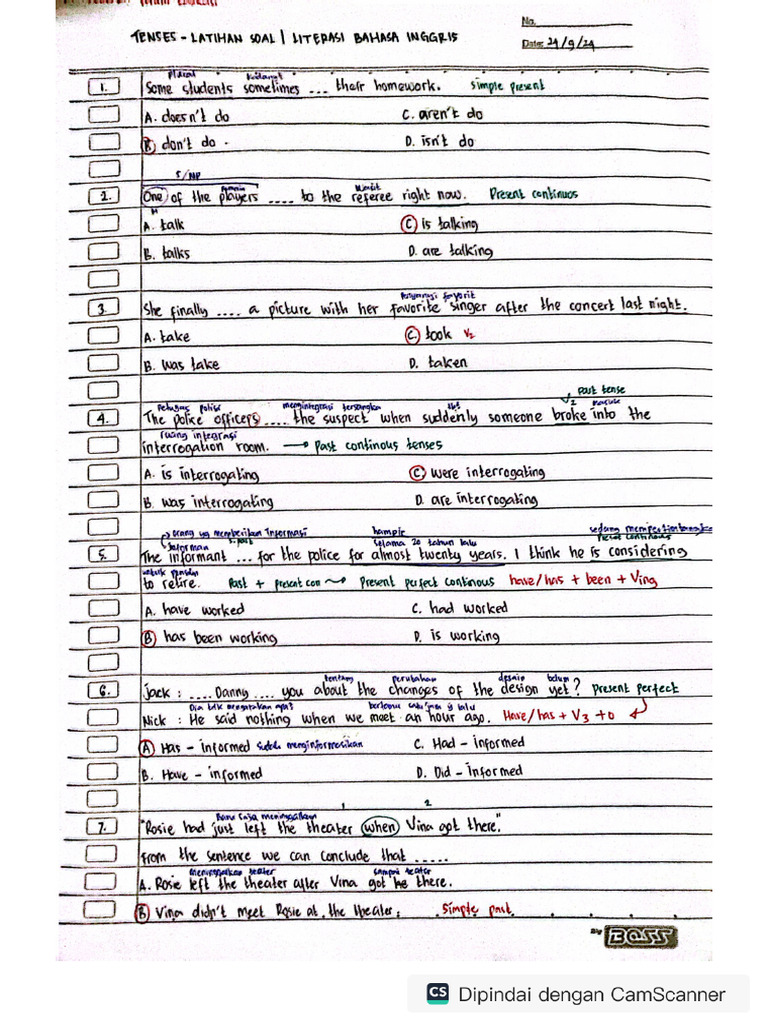 No.
TENSES - LATIHAN SOAL | LITERASI BAHASA INGGRIS
Date: 24/9/24
plural kadang²
1. Some students sometimes ... their homework. simple present
A. doesn't do C. aren't do
B. don't do D. isn't do
S/NP
2. One of the players .... to the referee right now. Present continuos
A. talk C. is talking
B. talks D. are talking
3. She finally .... a picture with her favorite singer after the concert last night.
A. take C. took V2
B. was take D. taken
Past tense
Petugas polisi mengintegrasi tersangka V2
4. The police officers .... the suspect when suddenly someone broke into the
ruang integrasi
interrogation room. → Past continous tenses
A. is interrogating C. were interrogating
B. was interrogating D. are interrogating
orang yg memberikan informasi hampir
selama 20 tahun lalu
5. The informant ... for the police for almost twenty years. I think he is considering
to retire. Past + present con → Present perfect continous have/has + been + Ving
A. have worked C. had worked
B. has been working D. is working
tentang perubahan desain belum
6. Jack : .... Danny .... you about the changes of the design yet? Present perfect
Nick : He said nothing when we meet an hour ago. Have/has + V3 + O
A. Has - informed sudah menginformasikan C. Had - informed
B. Have - informed D. Did - informed
1 2
Baru saja meninggalkan
7. "Rosie had just left the theater when Vina got there."
From the sentence we can conclude that .....
meninggalkan teater sampai teater
A. Rosie left the theater after Vina got he there.
B. Vina didn't meet Rosie at the theater. Simple past.
By BOSS
CS Dipindai dengan CamScanner